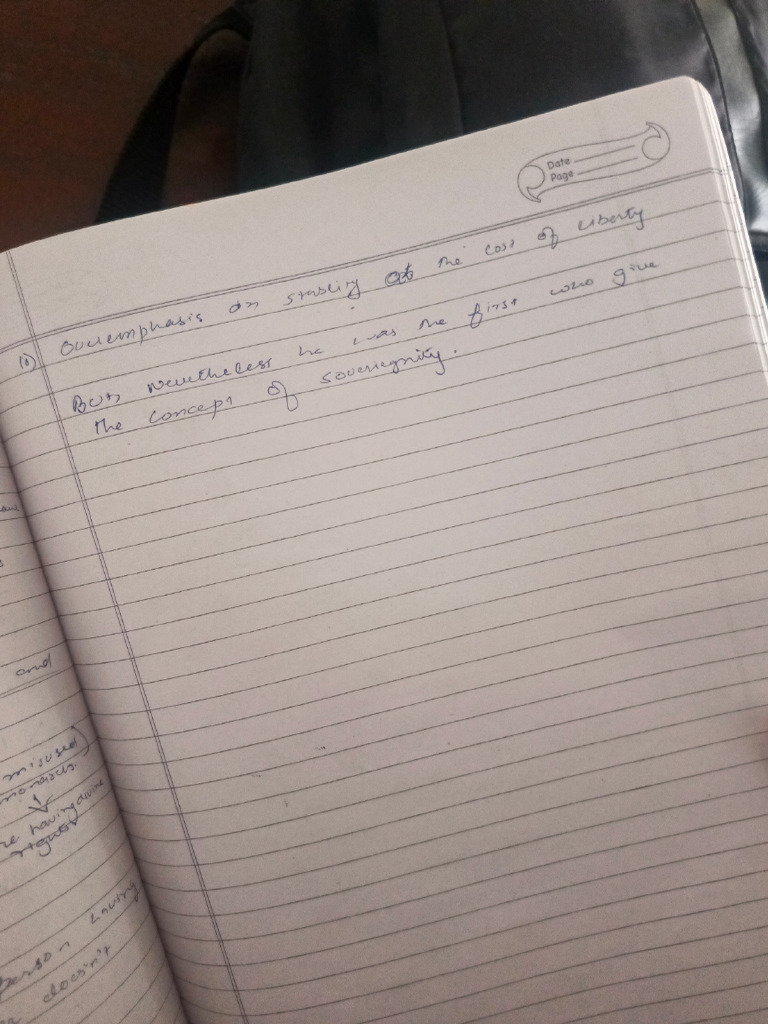 Date
Page
Overemphasis on stability at the cost of liberty
But nevertheless he was the first who give
the concept of sovereignity.
and
misused
monarchs.
having divine
rights
Person having
doesn't